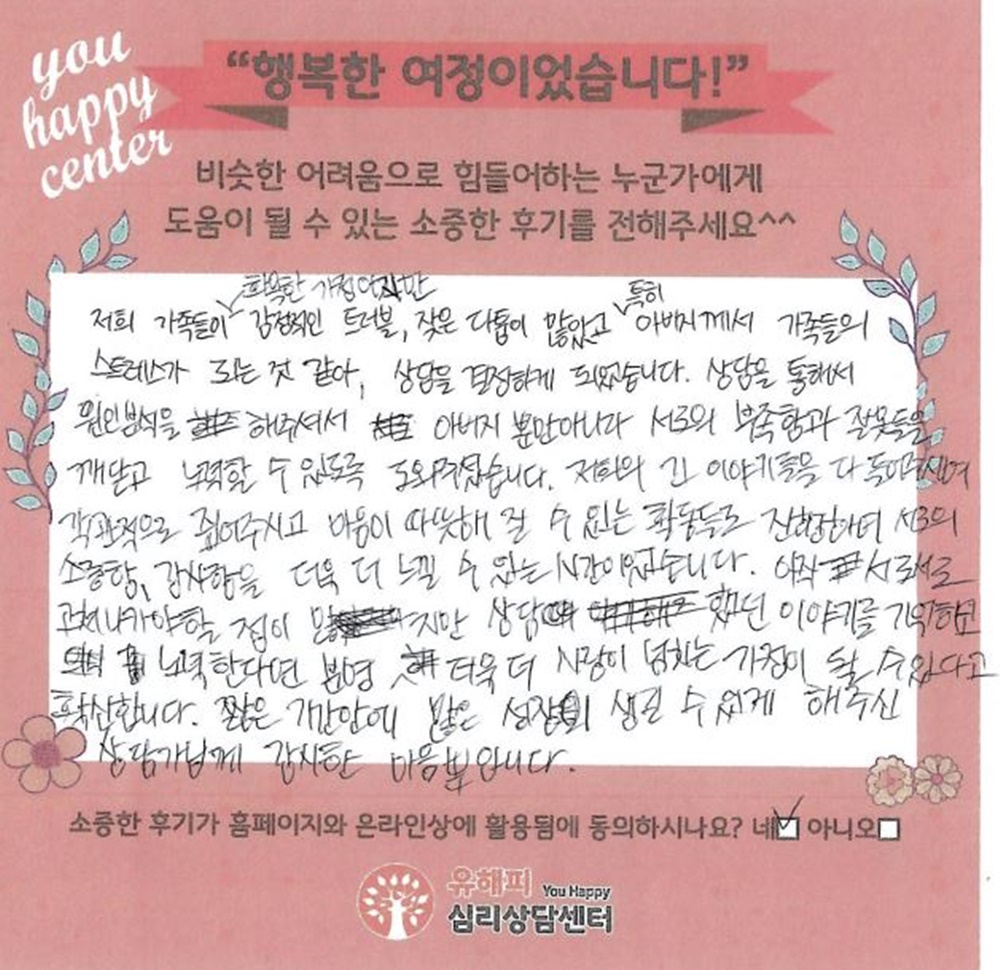 you
happy
center
“행복한 여정이었습니다!”
비슷한 어려움으로 힘들어하는 누군가에게
도움이 될 수 있는 소중한 후기를 전해주세요^^
화목한 가정이지만 특히
저희 가족들이 감정적인 트러블, 잦은 다툼이 많았고 아버지께서 가족들의
스트레스가 되는 것 같아, 상담을 결정하게 되었습니다. 상담을 통해서
원인분석을 해주셔서 아버지 뿐만아니라 서로의 부족함과 잘못들을
깨닫고 노력할 수 있도록 도와주셨습니다. 저희의 긴 이야기들을 다 들어주시며
객관적으로 짚어주시고 마음이 따뜻해 질 수 있는 활동들로 진행하며 서로의
소중함, 감사함을 더욱 더 느낄 수 있는 시간이었습니다. 아직 서로서로
고쳐나가야할 점이 많지만 상담 했던 이야기를 기억하며
노력한다면 분명 더욱 더 사랑이 넘치는 가정이 될 수 있다고
확신합니다. 짧은 기간안에 많은 성장이 생길 수 있게 해주신
상담가님께 감사한 마음뿐입니다.
소중한 후기가 홈페이지와 온라인상에 활용됨에 동의하시나요? 네 아니오
유해피 You Happy
심리상담센터